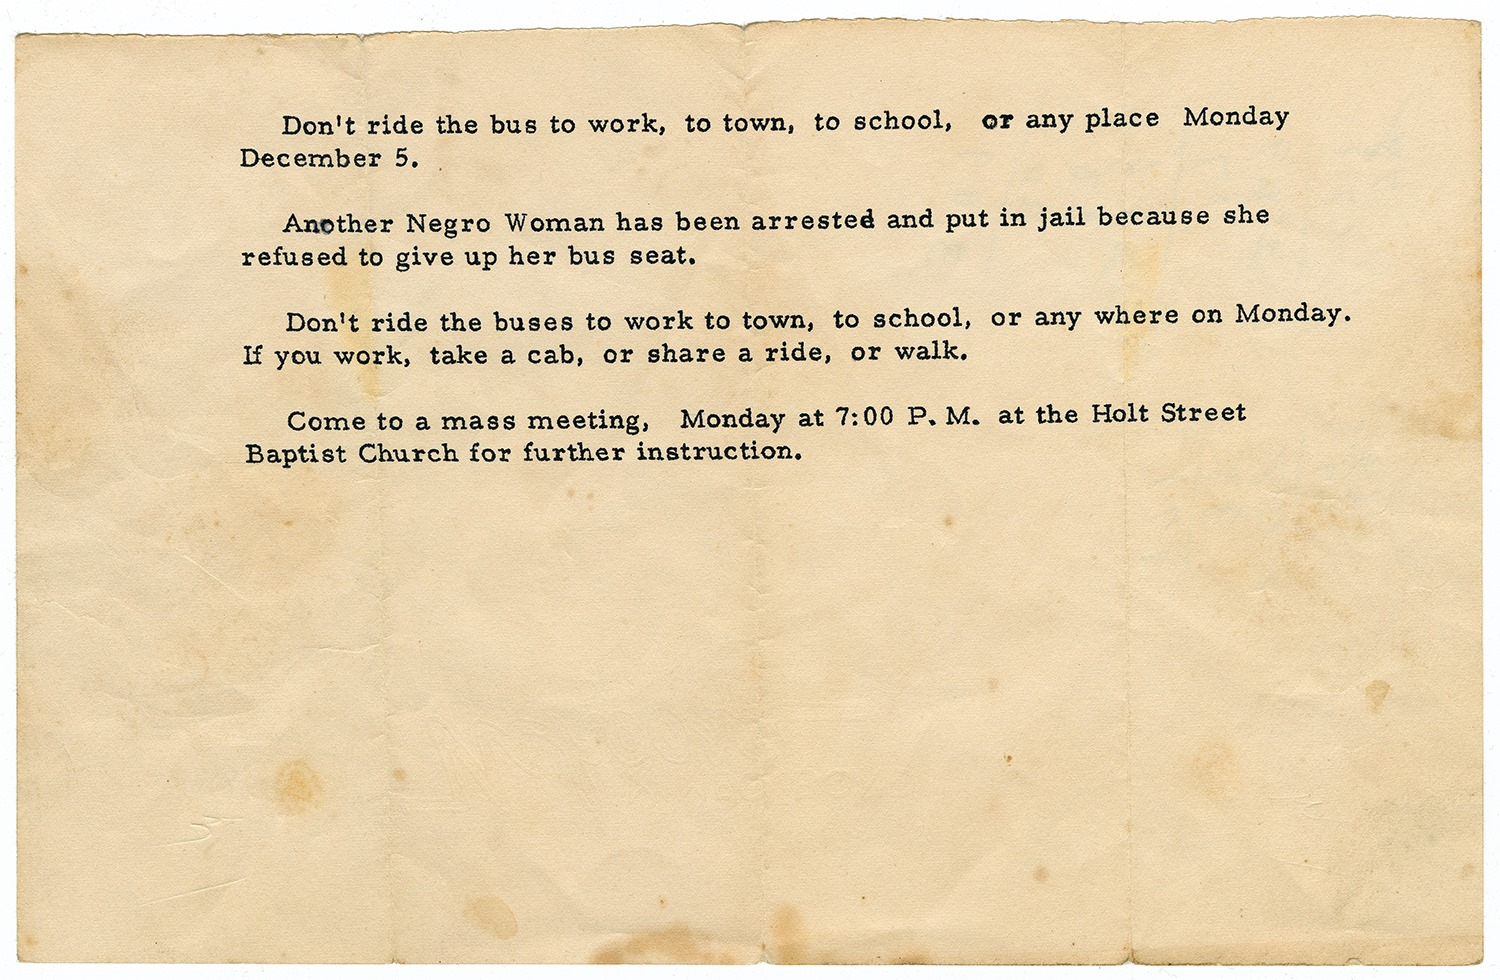 Don't ride the bus to work, to town, to school, or any place Monday
December 5.
Another Negro Woman has been arrested and put in jail because she
refused to give up her bus seat.
Don't ride the buses to work to town, to school, or any where on Monday.
If you work, take a cab, or share a ride, or walk.
Come to a mass meeting, Monday at 7:00 P. M. at the Holt Street
Baptist Church for further instruction.